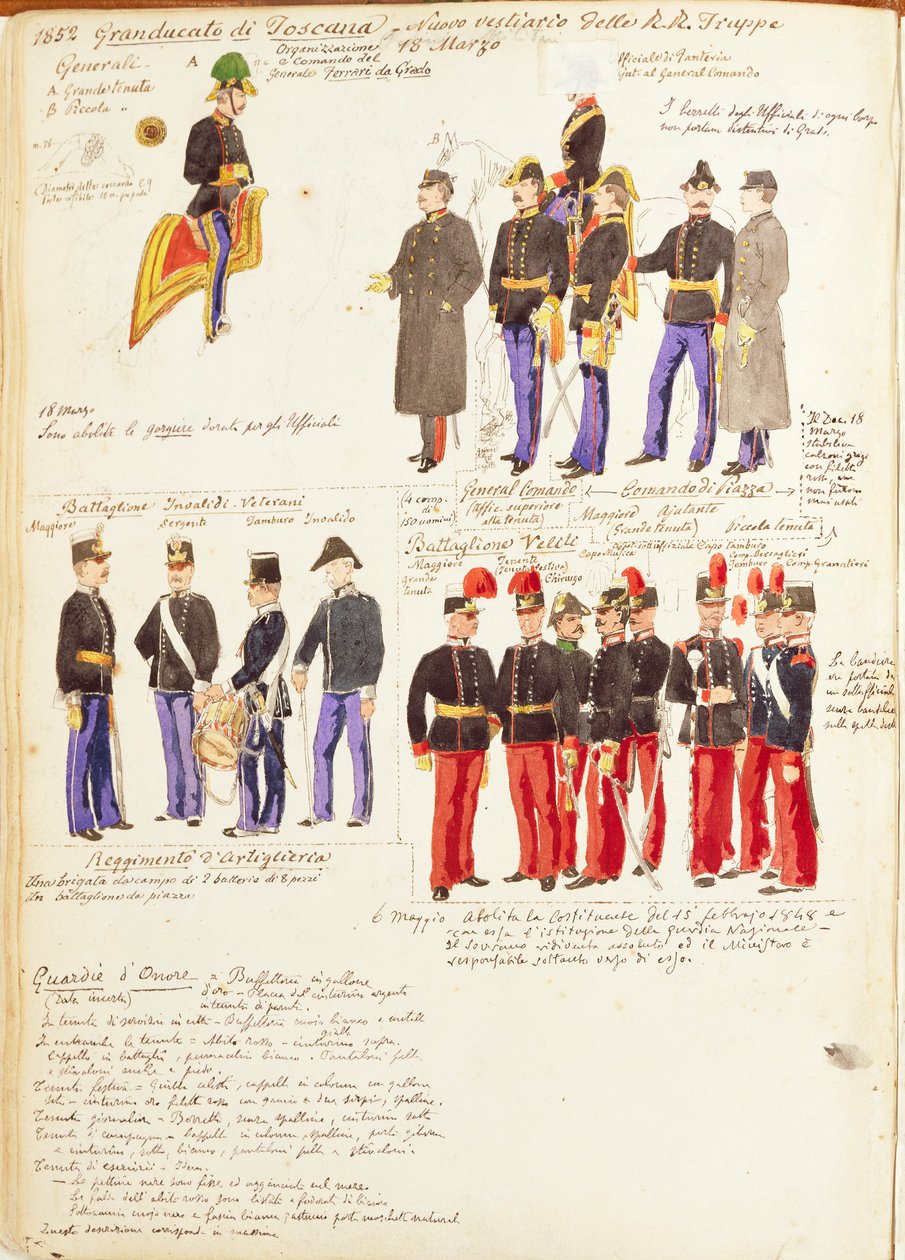 1852 Granducato di Toscana - Nuovo vestiario delle R.R. Truppe
18 Marzo
Organizzazione
e Comando del
Generale Ferrari da Grado
Generali -
A Grande tenuta
B Piccola "
A
m. 76
Diametri delle coccarde
B
Ufficiale di Fanteria
ajut. al General Comando
I berretti degli Ufficiali d'ogni Corpo
non portano distintivi di Grado.
18 Marzo
Sono abolite le gorgiere dorate per gli Ufficiali
Il Dec. 18
Marzo
stabiliva
calzoni grigi
con filetti
rossi, ma
non furono
mai usati
General Comando
(Uffic. superiore
alta tenuta)
Comando di Piazza
Maggiore Ajutante
(Grande tenuta)
Piccola tenuta
Battaglione Invalidi-Veterani
(4 comp.
di
150 uomini)
Maggiore Sergente Tamburo Invalido
Battaglione Veliti
Maggiore
Grande
tenuta
Tenente
(Tenuta festiva)
Chirurgo
Capo Musica
Sott'ufficiale Capo Tamburo
Comp. Bersaglieri
Tamburo
Comp. Granatieri
La bandiera
era portata da
un sottufficiale
senza
Reggimento d'Artiglieria
Una brigata da campo di 2 batterie di 8 pezzi
Un battaglione da piazza
6 Maggio Abolita la Costituente del 15 febbrajo 1848 e
con essa l'istituzione della Guardia Nazionale -
Il Sovrano ridiventa assoluto ed il Ministero è
responsabile soltanto verso di esso.
Guardie d'Onore
(Data incerta)
a Buffetteria in gallone
d'oro - Placca del cinturino argento
in tenuta di parata.
In tenuta di servizio in città - Buffetteria cuojo bianco e metallo
giallo
In entrambe le tenute = Abito rosso - cinturino sopra.
Cappello in battaglia, pennacchio bianco. Pantaloni pelle
e stivaloni anche a piedi.
Tenuta festiva = Giubba celeste, cappello in colonna con gallone
seta - cinturino oro filetti rosso con gancio a due serpi, spalline.
Tenuta giornaliera - Berretto, senza spalline, cinturino sotto
Tenuta di campagna = Cappello in colonna, spalline,
e cinturino, sotto, bianco, pantaloni pelle e stivaloni.
Tenuta di esercizii - Idem.
Le falde dell'abito rosso sono listate e foderate di bianco
Questa descrizione corrisponde in massima